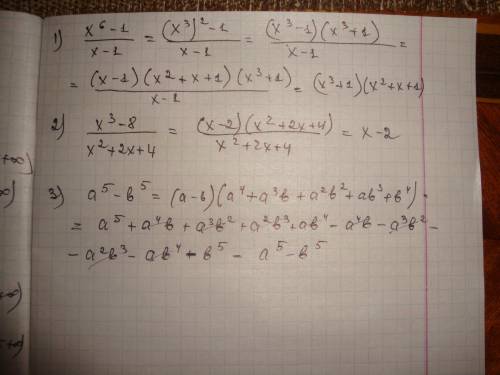 1) x⁶-1 / x-1 = (x³)²-1 / x-1 = (x³-1)(x³+1) / x-1 =
= (x-1)(x²+x+1)(x³+1) / x-1 = (x³+1)(x²+x+1)
2) x³-8 / x²+2x+4 = (x-2)(x²+2x+4) / x²+2x+4 = x-2
3) a⁵-b⁵ = (a-b)(a⁴+a³b+a²b²+ab³+b⁴)
= a⁵+a⁴b+a³b²+a²b³+ab⁴-a⁴b-a³b²-
-a²b³-ab⁴-b⁵ = a⁵-b⁵
+∞)
+∞)
+∞)